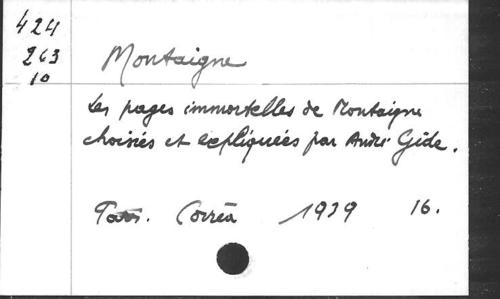 424
263
10
Montaigne
Les pages immortelles de Montaigne
choisies et expliquées par André Gide.
Corrêa 1939 16.